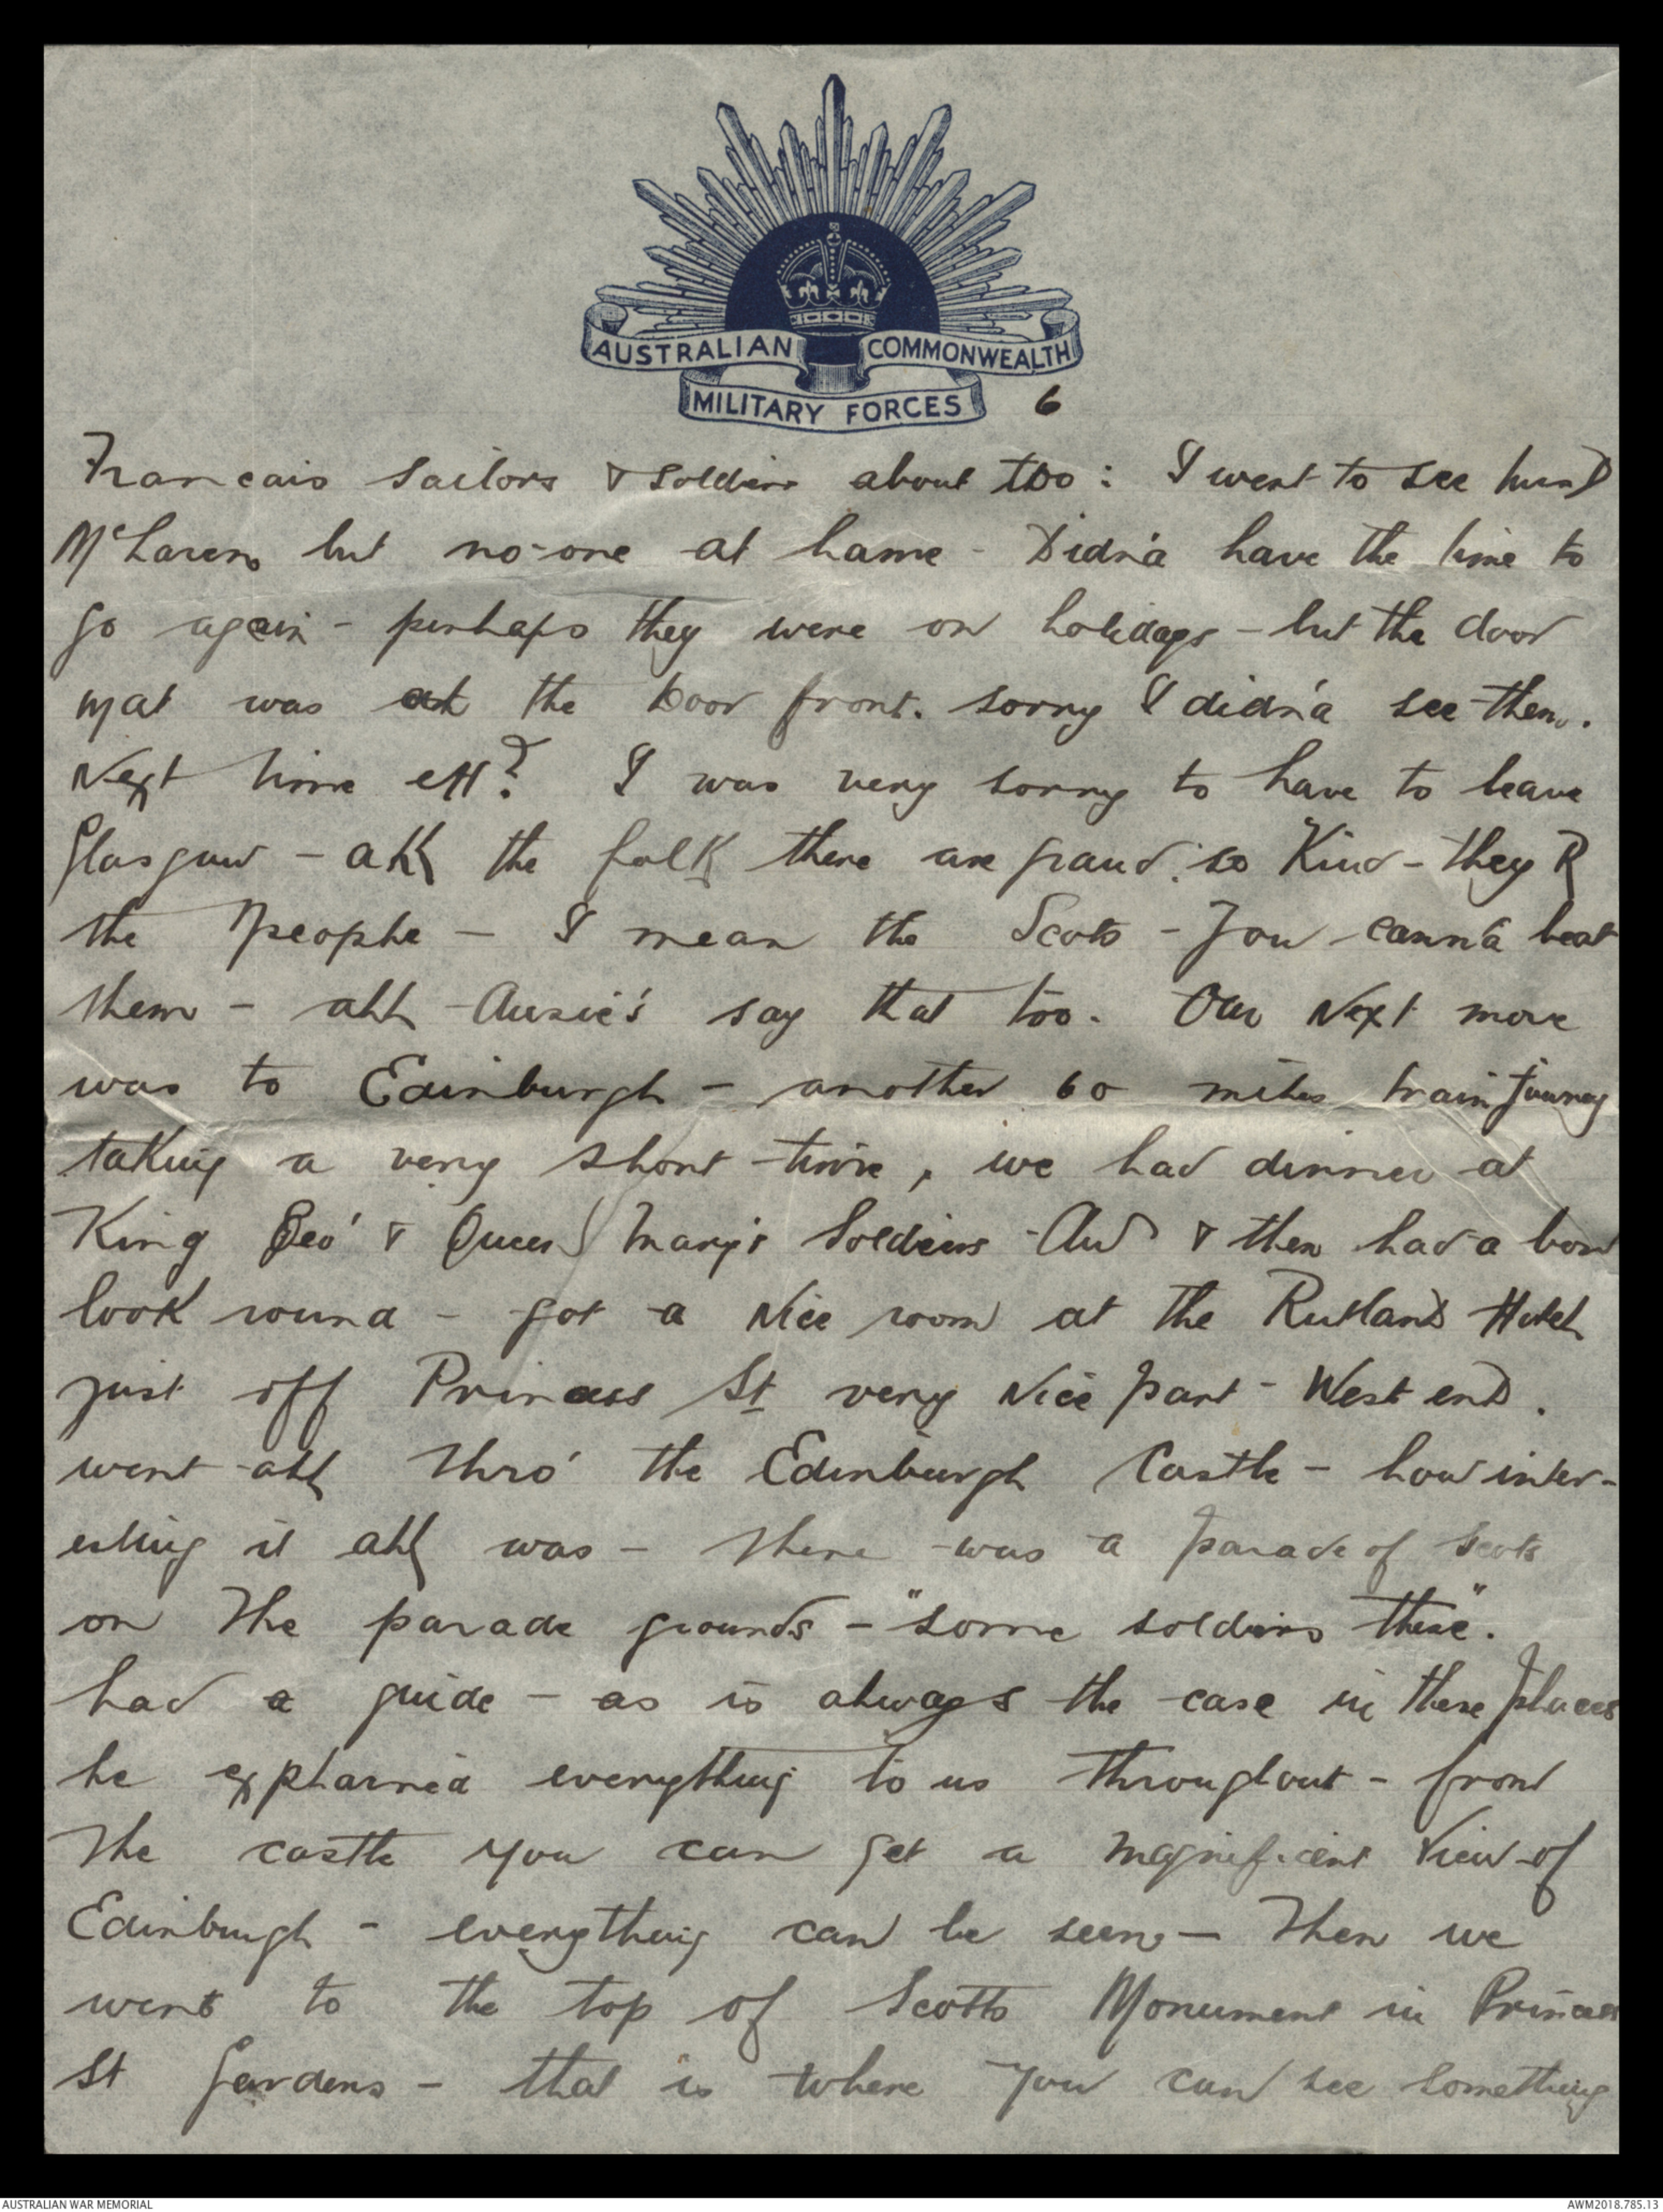 AUSTRALIAN COMMONWEALTH
MILITARY FORCES 6
Francais sailors & soldiers about too: I went to see
McLarens but no-one at hame - Didna have the time to
go again - perhaps they were on holidays - but the door
mat was at the Door front. sorry I didna see them.
Next time eh? I was very sorry to have to leave
Glasgow - all the folk there are grand. so Kind - they R
the people - I mean the Scots - you canna beat
them - all Aussie's say that too. Our Next move
was to Edinburgh - another 60 miles train journey
taking a very short time, we had dinner at
King Geo' & Queen Mary's Soldiers & then had a
look round - got a Nice room at the Rutland Hotel
just off Princess St very Nice part - West end.
went all thro' the Edinburgh Castle - how inter-
esting it all was - there was a parade of Scots
on the parade grounds - "some soldiers these".
had a guide - as is always the case in these places
he explained everything to us throughout - from
the castle you can get a magnificent View of
Edinburgh - everything can be seen - Then we
went to the top of Scotts Monument in Princess
St Gardens - that is where you can see something
AUSTRALIAN WAR MEMORIAL AWM2018.785.13